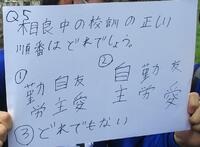 Q5
相良中の校訓の正しい
順番はどれでしょう。
① 勤労 自主 友愛
② 自主 勤労 友愛
③ どれでもない